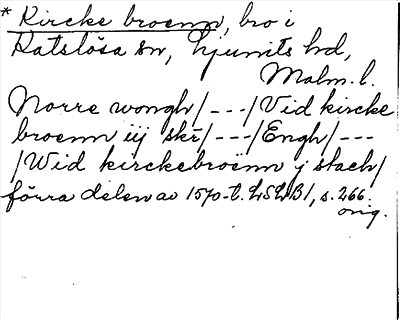 * Kircke broenn, bro i
Katslösa sn, Ljunits hd,
Malm. l.
Norre wongh/---/Vid kircke
broenn iij skr̄/---/Engh/---
/Wid kirckebroënn j stach/
förra delen av 1570-t. LSLB1, s. 266.
orig.